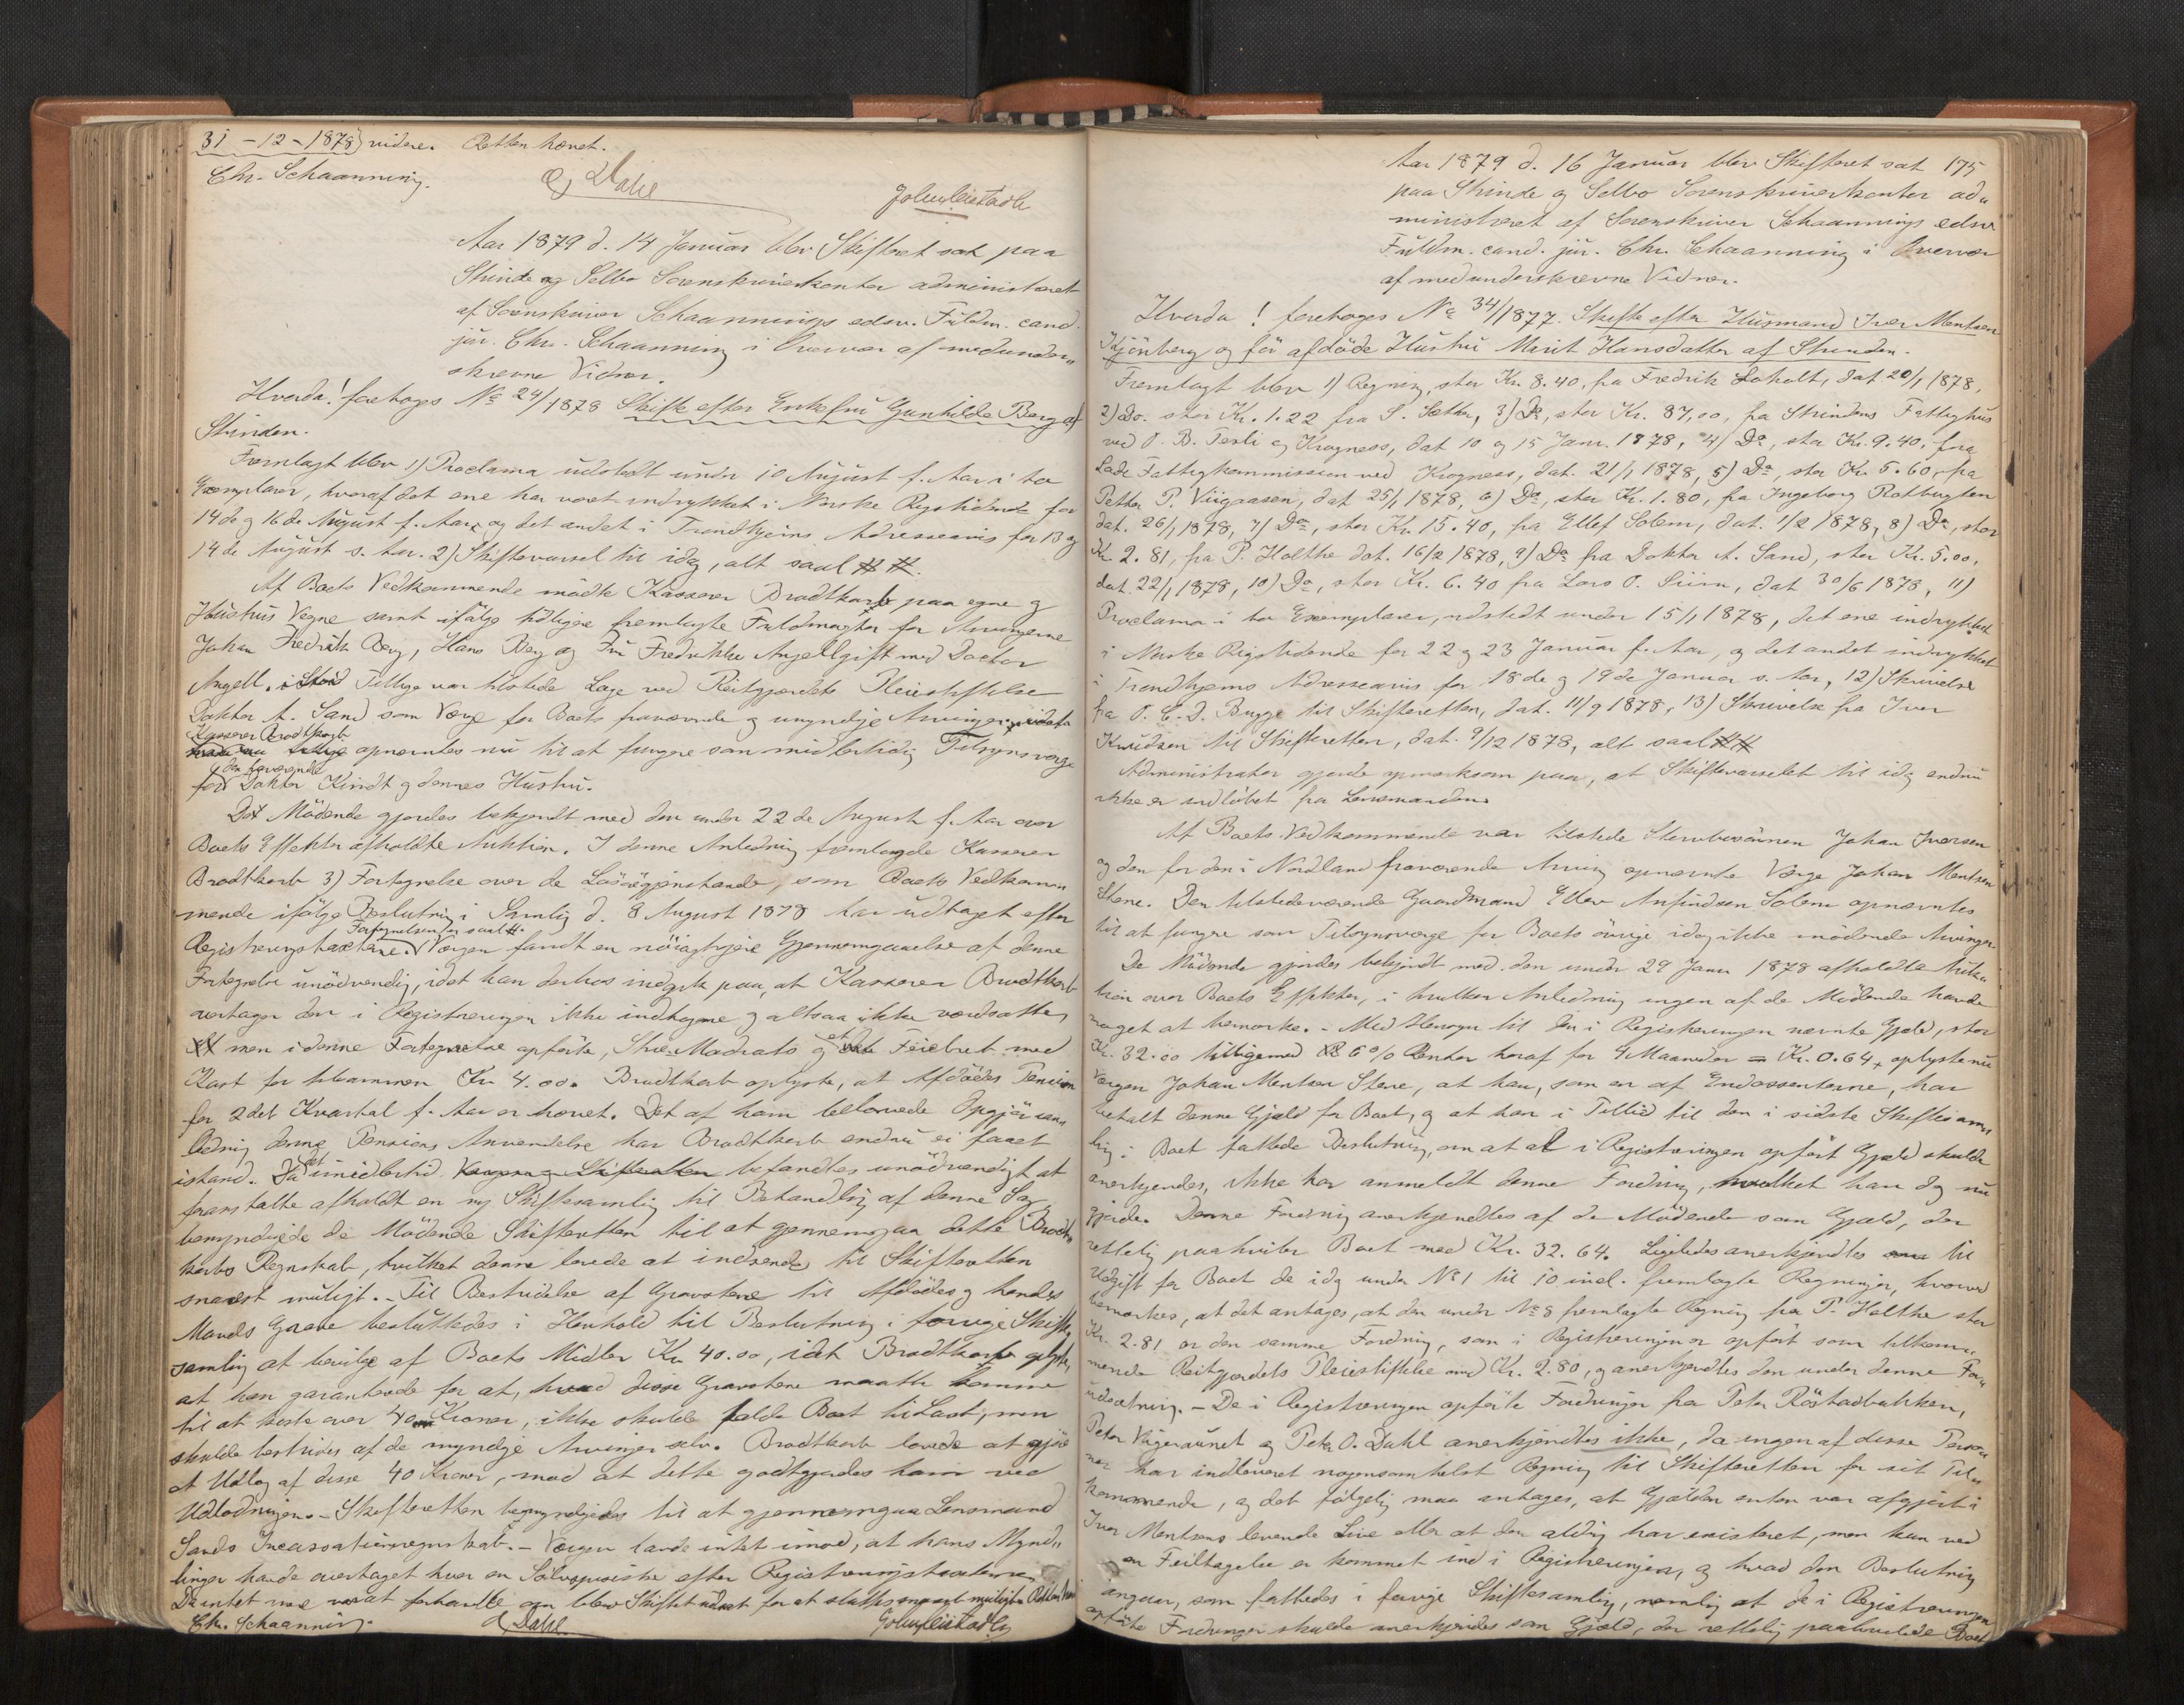 31 - 12 - 1878) videre. Retten hævet.
Chr. Schaanning. O Dahl
Aar 1879 d. 14 Januar blev Skifteret sat paa
Strinde og Selbo Sorenskriverkontor administreret
af Sorenskriver Schaannings edsv. Fuldm. cand.
jur. Chr. Schaanning i Overvær af medunder„
skrevne Vidner.
Hvorda! foretoges No 24/1878 Skifte efter Enkefru Gunhilde Berg af
Strinden.
Fremlagt blev 1) Proclama udstedt under 10 August f. Aar i to
Exemplarer, hvoraf det ene har været indrykket i Norske Rigstidende for
14de og 16de August f. Aar, og det andet i Trondhjems Adresseavis for 13 og
14de August s. Aar. 2) Skiftevarsel til idag, alt saal ##.
Af Boets Vedkommende mødte Kasserer Brodtkorb paa egne og
Hustrus Vegne samt ifølge tidligere fremlagte Fuldmagter for Arvingerne
Johan Fredrik Berg, Hans Berg og Fru Fredrikke Angell gift med Doctor
Angell. Tillige var tilstede Læge ved Reitgjerdets Pleiestiftelse
Doktor A. Sand som Værge for Boets fraværende og umyndige Arvinger
Kasserer Brodtkorb
opnævntes nu til at fungere som midlertidig Tilsynsværge
den fraværende
for Doktor Kindt og dennes Hustru.
De Mødende gjordes bekjendt med den under 22de August f. Aar over
Boets Effekter afholdte Auktion. I denne Anledning fremlagde Kasserer
Brodtkorb 3) Fortegnelse over de Løsøregjenstande, som Boets Vedkom„
mende ifølge Beslutning i Samling d. 8 August 1878 har udtaget efter
Fortegnelsen er saal #.
Registreringstaxterne. Værgen fandt en nøiagtigere Gjennemgaaelse af denne
Fortegnelse unødvendig, idet han derhos indgik paa, at Kasserer Brodtkorb
overtager den i Registreringen ikke indtagne og altsaa ikke værdsatte,
men i denne Fortegnelse opførte, Madrats og et Feiebret med
Kost for tilsammen Kr 4.00. Brodtkorb oplyste, at Afdødes Pension
for 2det Kvartal f. Aar er hævet. Det af ham bebovede Opgjør
denne Pensions Anvendelse har Brodtkorb endnu ei faaet
istand. Da det imidlertid befandtes unødvendigt at
foranstalte afholdt en ny Skiftesamling til Behandling af denne Sag
bemyndigede de Mødende Skifteretten til at gjennemgaa dette Brodt„
korbs Regnskab, hvilket denne lovede at indsende til Skifteretten
snarest muligt. - Til Bestridelse af Gravstene til Afdødes og hendes
Mands Grave besluttedes i Henhold til Beslutning i forrige Skifte„
samling at bevilge af Boets Midler Kr 40.00, idet Brodtkorb oplyste,
at han garanterede for at, hvad disse Gravstene maatte komme
til at koste over 40 Kroner, ikke skulde falde Boet til Last, men
skulde bestrides af de myndige Arvinger selv. Brodtkorb lovede at gjøre
et Udlæg af disse 40 Kroner, mod at dette godtgjordes ham ved
Udlodningen. - Skifteretten bemyndigedes til at gjennemgaa Lensmand
Sands Incassationsregnskab. - Værgen havde intet imod, at hans Mynd„
linger havde overtaget hver en Sølvspiseske efter Registreringstaxterne.
Da intet mere var at forhandle om blev Skiftet udsat for at sluttes snarest muligt. Retten
Chr. Schaanning. O Dahl
Aar 1879 d. 16 Januar blev Skifteret sat 175
paa Strinde og Selbo Sorenskriverkontor ad„
ministreret af Sorenskriver Schaannings edsv.
Fuldm. cand. jur. Chr. Schaanning i Overvær
af medunderskrevne Vidner.
Hvorda! foretoges No 34/1877. Skifte efter Husmand Iver Mentsen
Kjönberg og før afdøde Hustru Marit Hansdatter af Strinden.
Fremlagt blev 1) Regning, stor Kr. 8.40, fra Fredrik Loholt, dat 20/1 1878,
2) Do. stor Kr. 1.22 fra S. Sæther, 3) Do, stor Kr. 87,00, fra Strindens Fattighus
ved O. B. Tesli og Krogness, dat 10 og 15 Janr. 1878, 4) Do, stor Kr. 9.40, fra
Lade Fattigkommission ved Krogness, dat. 21/1 1878, 5) Do, stor Kr 5.60, fra
Petter P. Viigaasen, dat 25/1 1878, 6) Do, stor Kr. 1.80, fra Ingeborg Rotbugten
dat. 26/1 1878, 7) Do, stor Kr. 15.40, fra Ellef Solem, dat. 1/2 1878, 8) Do, stor
Kr 2.81, fra P. Holthe dat. 16/2 1878, 9) Do fra Doktor A. Sand, stor Kr. 5.00,
dat. 22/1 1878, 10) Do, stor Kr. 6.40 fra Lars O. Siirn, dat 30/6 1878, 11)
Proclama i to Exemplarer, udstedt under 15/1 1878, det ene indrykket
i Norske Rigstidende for 22 og 23 Januar f. Aar, og det andet indrykket
i Trondhjems Adresseavis for 18de og 19de Januar s. Aar, 12) Skrivelse
fra O. C. D. Bugge til Skifteretten, dat. 11/9 1878, 13) Skrivelse fra Iver
Knudsen til Skifteretten, dat. 9/12 1878, alt saal ##
Administrator gjorde opmærksom paa, at Skiftevarselet til idag endnu
ikke er indløbet fra Lensmanden.
Af Boets Vedkommende var tilstede Stervbosønnen Johan Iversen
og den for den i Nordland fraværende Arving opnævnte Værge Johan Mentsen
Stene. Den tilstedeværende Gaardmand Ellev Anfindsen Solem opnævntes
til at fungere som Tilsynsværge for Boets øvrige idag ikke mødende Arvinger.
De Mødende gjordes bekjendt med den under 29 Janr 1878 afholdte Auk„
tion over Boets Effekter, i hvilken Anledning ingen af de Mødende havde
noget at bemærke. - Med Hensyn til den i Registreringen nævnte Gjæld, stor
Kr. 32.00 tilligemed 6% Renter heraf for 4 Maaneder = Kr. 0.64, oplyste nu
Værgen Johan Mentsen Stene, at han, som en af Endossenterne, har
betalt denne Gjæld for Boet, og at han i Tillid til den i sidste Skiftesam„
ling i Boet fattede Beslutning, om at al i Registreringen opført Gjæld skulde
anerkjendes, ikke har anmeldt denne Fordring, hvilket han dog nu
gjorde. Denne Fordring anerkjendtes af de Mødende som Gjæld, der
rettelig paahviler Boet med Kr. 32.64. Ligeledes anerkjendtes til
Udgift for Boet de idag under No 1 til 10 incl. fremlagte Regninger, hvorved
bemærkes, at det antages, at den under No 8 fremlagte Regning fra P. Holthe stor
Kr. 2.81 er den samme Fordring, som i Registreringen er opført som tilkom„
mende Reitgjerdets Pleiestiftelse med Kr. 2.80, og anerkjendtes den under denne For„
udsætning. - De i Registreringen opførte Fordringer fra Peter Röstadbakken,
Peter Viigeraunet og Peter O. Dahl anerkjendtes ikke, da ingen af disse Perso„
ner har indleveret nogensomhelst Regning til Skifteretten for sit Til„
kommende, og det følgelig maa antages, at Gjælden enten var afgjort i
Iver Mentsens levende Live eller at den aldrig har existeret, men kun ved
en Feiltagelse er kommet ind i Registreringen, og hvad den Beslutning
angaar, som fattedes i forrige Skiftesamling, nemlig at de i Registreringen
opførte Fordringer skulde anerkjendes som Gjæld, der rettelig paahvilede Boet